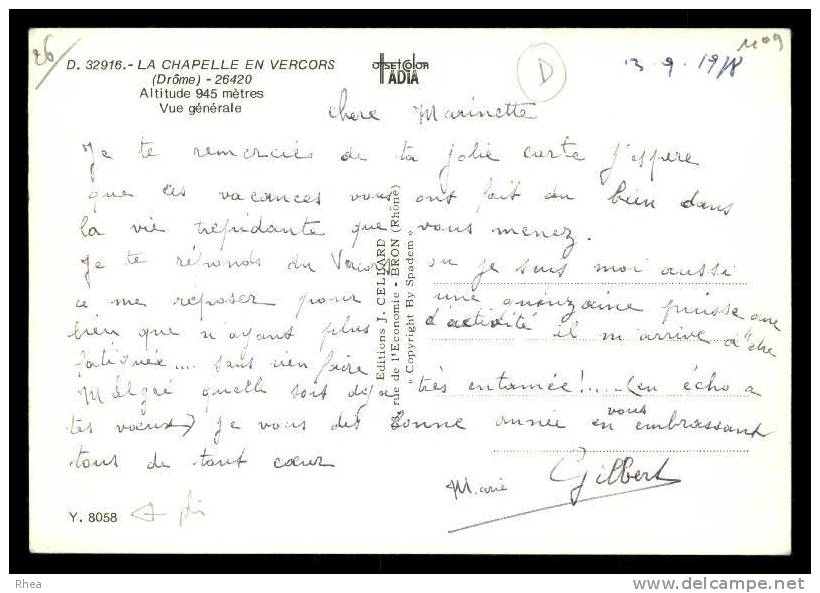 26
1109
D. 32916.- LA CHAPELLE EN VERCORS
(Drôme) - 26420
Altitude 945 mètres
Vue générale
OFFSET COLOR
IADIA
D
13-9-1978
chere Marinette
Je te remercies de ta jolie carte J'espere
que ces vacances vous ont fait du bien dans
la vie trepidante que vous menez.
Je te réponds du Vercors ou je suis moi aussi
a me reposer pour une quinzaine puisse que
bien que n'ayant plus d'activité il m'arrive d'être
fatiguée.... sans rien faire
Malgré quelle soit deja très entamée!.....(en écho a
tes voeux) je vous dis bonne année en vous embrassant
tous de tout coeur
Marie Gilbert
Editions J. CELLARD
rue de l'Economie - BRON (Rhône)
" Copyright By Spadem "
Y. 8058
Rhea
www.delcampe.net